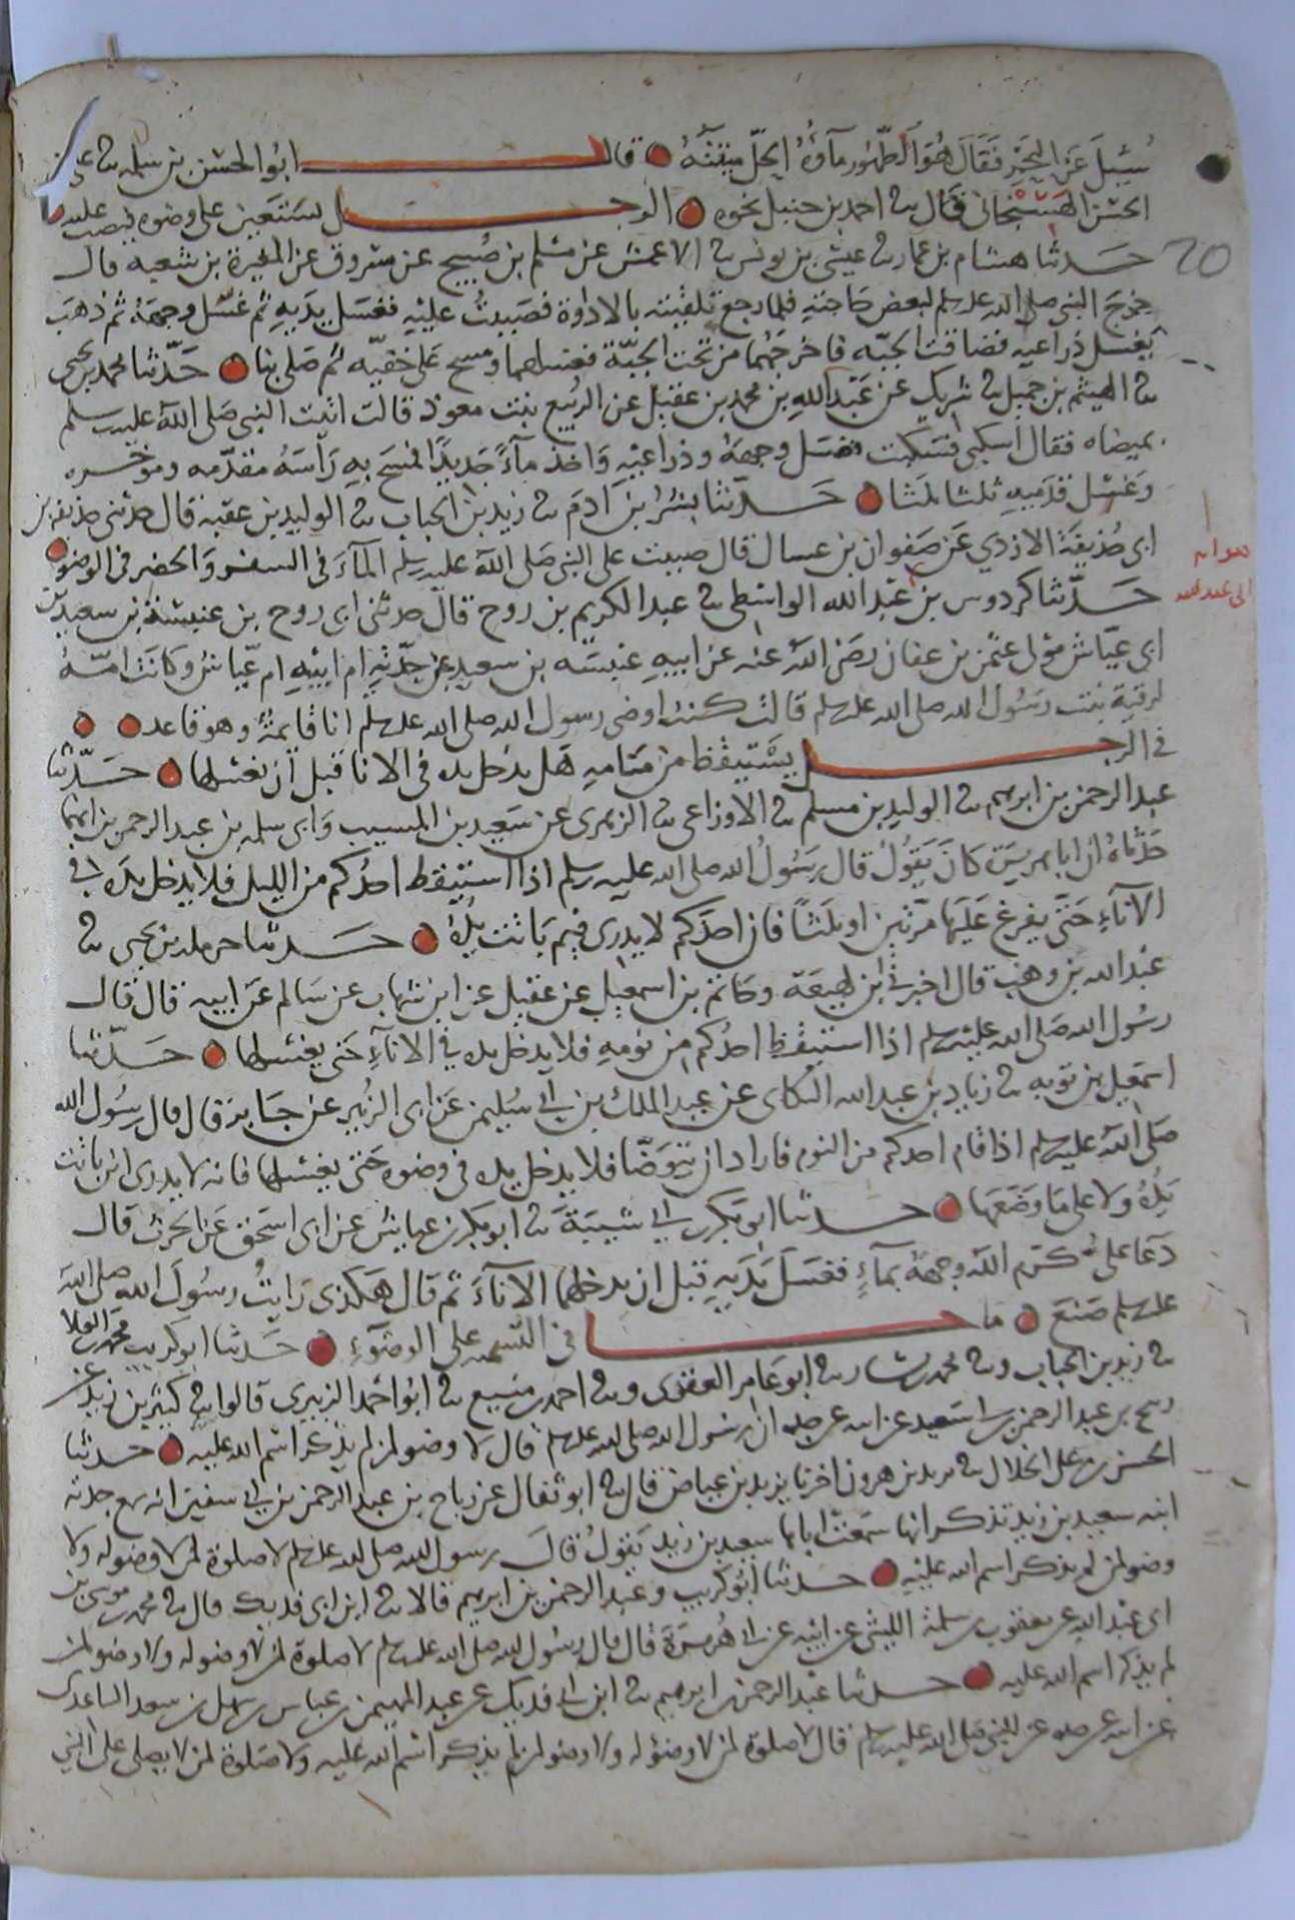 سُئِلَ عَنِ البَحْرِ فَقَالَ هُوَ الطَّهُورُ مَآؤُهُ الحِلُّ مَيْتَتُهُ قال ابُو الحسَن بن سلمه ثنا على
الحسَن الهَسِنْجانى قال ثنا احمد بن حنبل نحوه الرجل يستَعين على وضوه فيصب عليه
حَدثنا هشام بن عمار ثنا عيسَى بن يونس ثنا الاعمش عن مسْلم بن صُبيح عن مسْروق عن المغيرة بن شعبه قال
خرج النبى صلى الله عليه وسلم لبعض حَاجته فلما رجع تلقيته بالاداوة فصَببتُ علَيْهِ فغسَل يدَيهِ ثم غسَل وجههُ ثم ذهَبَ
يغسل ذراعيه فضاقت الجبّه فاخرجَهُما من تحت الجبّة فغسلهما ومسح عَلى خفيّه ثم صَلى بنا حَدّثنا محمد بن يحيى
ثنا الهيثم بن جميل ثنا شريك عن عَبْد اللهِ بن محمد بن عقيل عن الربُيع بنت معوذ قالت اتيت النبى صَلى اللهُ عليه وسلم
بميضاه فقال اسكبى فسَكبت فغسَل وجههُ وذراعَيْهِ وَاخذ مآءً جَديدًا فمسَح بِهِ رَأسَهُ مقدّمه وموخره
وغسَل قدَميهِ ثلثا ثلثا حَدّثنا بشرُ بن آدَم ثنا زيد بن الحباب ثنا الوليد بن عقبه قال حدثنى حذيفه بن
ابى حُذيفَة الازدي عَن صَفوان بن عسال قال صببت على النبى صَلى اللهُ عليه وسلم المآءَ فى السفر وَالحضر فى الوضوء
حَدّثنا كردوس بن عَبْد الله الواسَطى ثنا عبد الكريم بن روح قال حدثنى ابى روح بن عنبسَة بن سعيد بن
ابى عيّاش مولى عثمن بن عفان رضى اللهُ عنه عن ابيهِ عنبسَه بن سعيد عن جدّتِهِ ام ابيهِ ام عيّاش وكانت امَةً
لرقية بنت رسُول الله صلى الله عليه وسلم قالت كنت اوضى رسول الله صلى الله عليه وسلم انا قايمَةٌ وهو قاعد
فى الرجل يسْتيقظ من منامهِ هَل يدخل يده فى الانا قبل ان يغسَلها حَدّثنا
عبد الرحمن بن ابرهيم ثنا الوليد بن مسلم ثنا الاوزاعى ثنا الزهرى عن سَعيد بن المسيب وَابى سلمه بن عبد الرحمن انهما
حَدّثاهُ ان ابا هريرَة كانَ يَقُولُ قال رسُولُ الله صلى الله عليه وسلم اذا استيقظ احدُكم من الليل فلا يدخل يدَه فى
الانآءِ حَتّى يفرغ عَليَها مَرّتين او ثلَثاً فان احدَكم لا يدرى فيم بَاتت يدُهُ حَدثنا حرمله بن يحيى ثنا
عبْد الله بن وهب قال اخبرنى ابن لهيعَة وجَابر بن اسمعيل عن عقيل عن ابن شهاب عن سَالم عَن ابيه قال قال
رسُول الله صَلى الله عليه وسلم اذا استيقظ احدُكم من نومهِ فلا يدخل يده فى الانآءِ حَتى يغسَلها حَدّثنا
اسمعيل بن توبه ثنا زياد بن عبد الله البكاى عن عبد الملك بن ابى سُليمن عَن ابى الزبير عن جَابر قال قال رسُول الله
صَلى اللهُ عليه وسلم اذا قام احدكم من النوم فاراد ان يتوَضّا فلا يدخل يده فى وضوه حَتى يغسَلها فانه لا يدرى اين باتت
يدُهُ ولا على مَا وضَعَها حَدثنا ابو بَكر بن ابى شيبَة ثنا ابو بكر بن عياش عن ابى اسحَق عَن الحرث قال
دعَا على كرّم اللهُ وجههُ بمآءٍ فغسَل يدَيهِ قبل ان يدخلهما الانآءَ ثم قال هَكذى رَايتُ رسُولَ الله صلى اللهُ
عليه وسلم صَنعَ ما جا فى التسميه على الوضوءِ حَدثنا ابو كريب محمد بن العلا
ثنا زيد بن الحباب وثنا محمد بن بشار ثنا ابو عَامر العقدى وثنا احمد بن منيع ثنا ابو احمد الزبيرى قالوا ثنا كثير بن زيد عن
ربيح بن عبد الرحمن بن ابى سَعيد عن ابيه عن جده ان رسُول الله صلى الله عليه وسلم قال لا وضو لمن لم يذكر اسم الله عليه حدثنا
الحسن بن على الخلال ثنا يزيد بن هرون اخبرنا يزيد بن عياض قال ثنا ابو ثفال عن رباح بن عبد الرحمن بن ابى سفين انه سمع جدته
ابنه سعيد بن زيد تذكر انها سَمعَت اباها سعيد بن زيد يَقولُ قال رسول الله صلى الله عليه وسلم لا صلوة لمن لا وضو له ولا
وضو لمن لم يذكر اسم الله عليْهِ حَدثنا ابُو كريب وعبد الرحمن بن ابرهيم قالا ثنا ابن ابى فديك قال ثنا محمد بن موسى بن
ابى عَبْد الله عن يعقوب بن سلمة الليثى عن ابيه عن ابى هُريرَة قال قال رسُول الله صلى الله عليه وسلم لا صلوة لمن لا وضو له ولا وضو لمن
لم يذكر اسم الله عليه حدثنا عبْد الرحمن بن ابرهيم ثنا ابن ابى فديك عن عبد المهيمن بن عباس بن سهل بن سعد الساعدى
عن ابيه عن جده عن النبى صَلى الله عليه وسلم قال لا صلوة لمن لا وضوَ له ولا وضو لمن لم يذكر اسم الله عليه ولا صلوة لمن لا يصلى على النبى